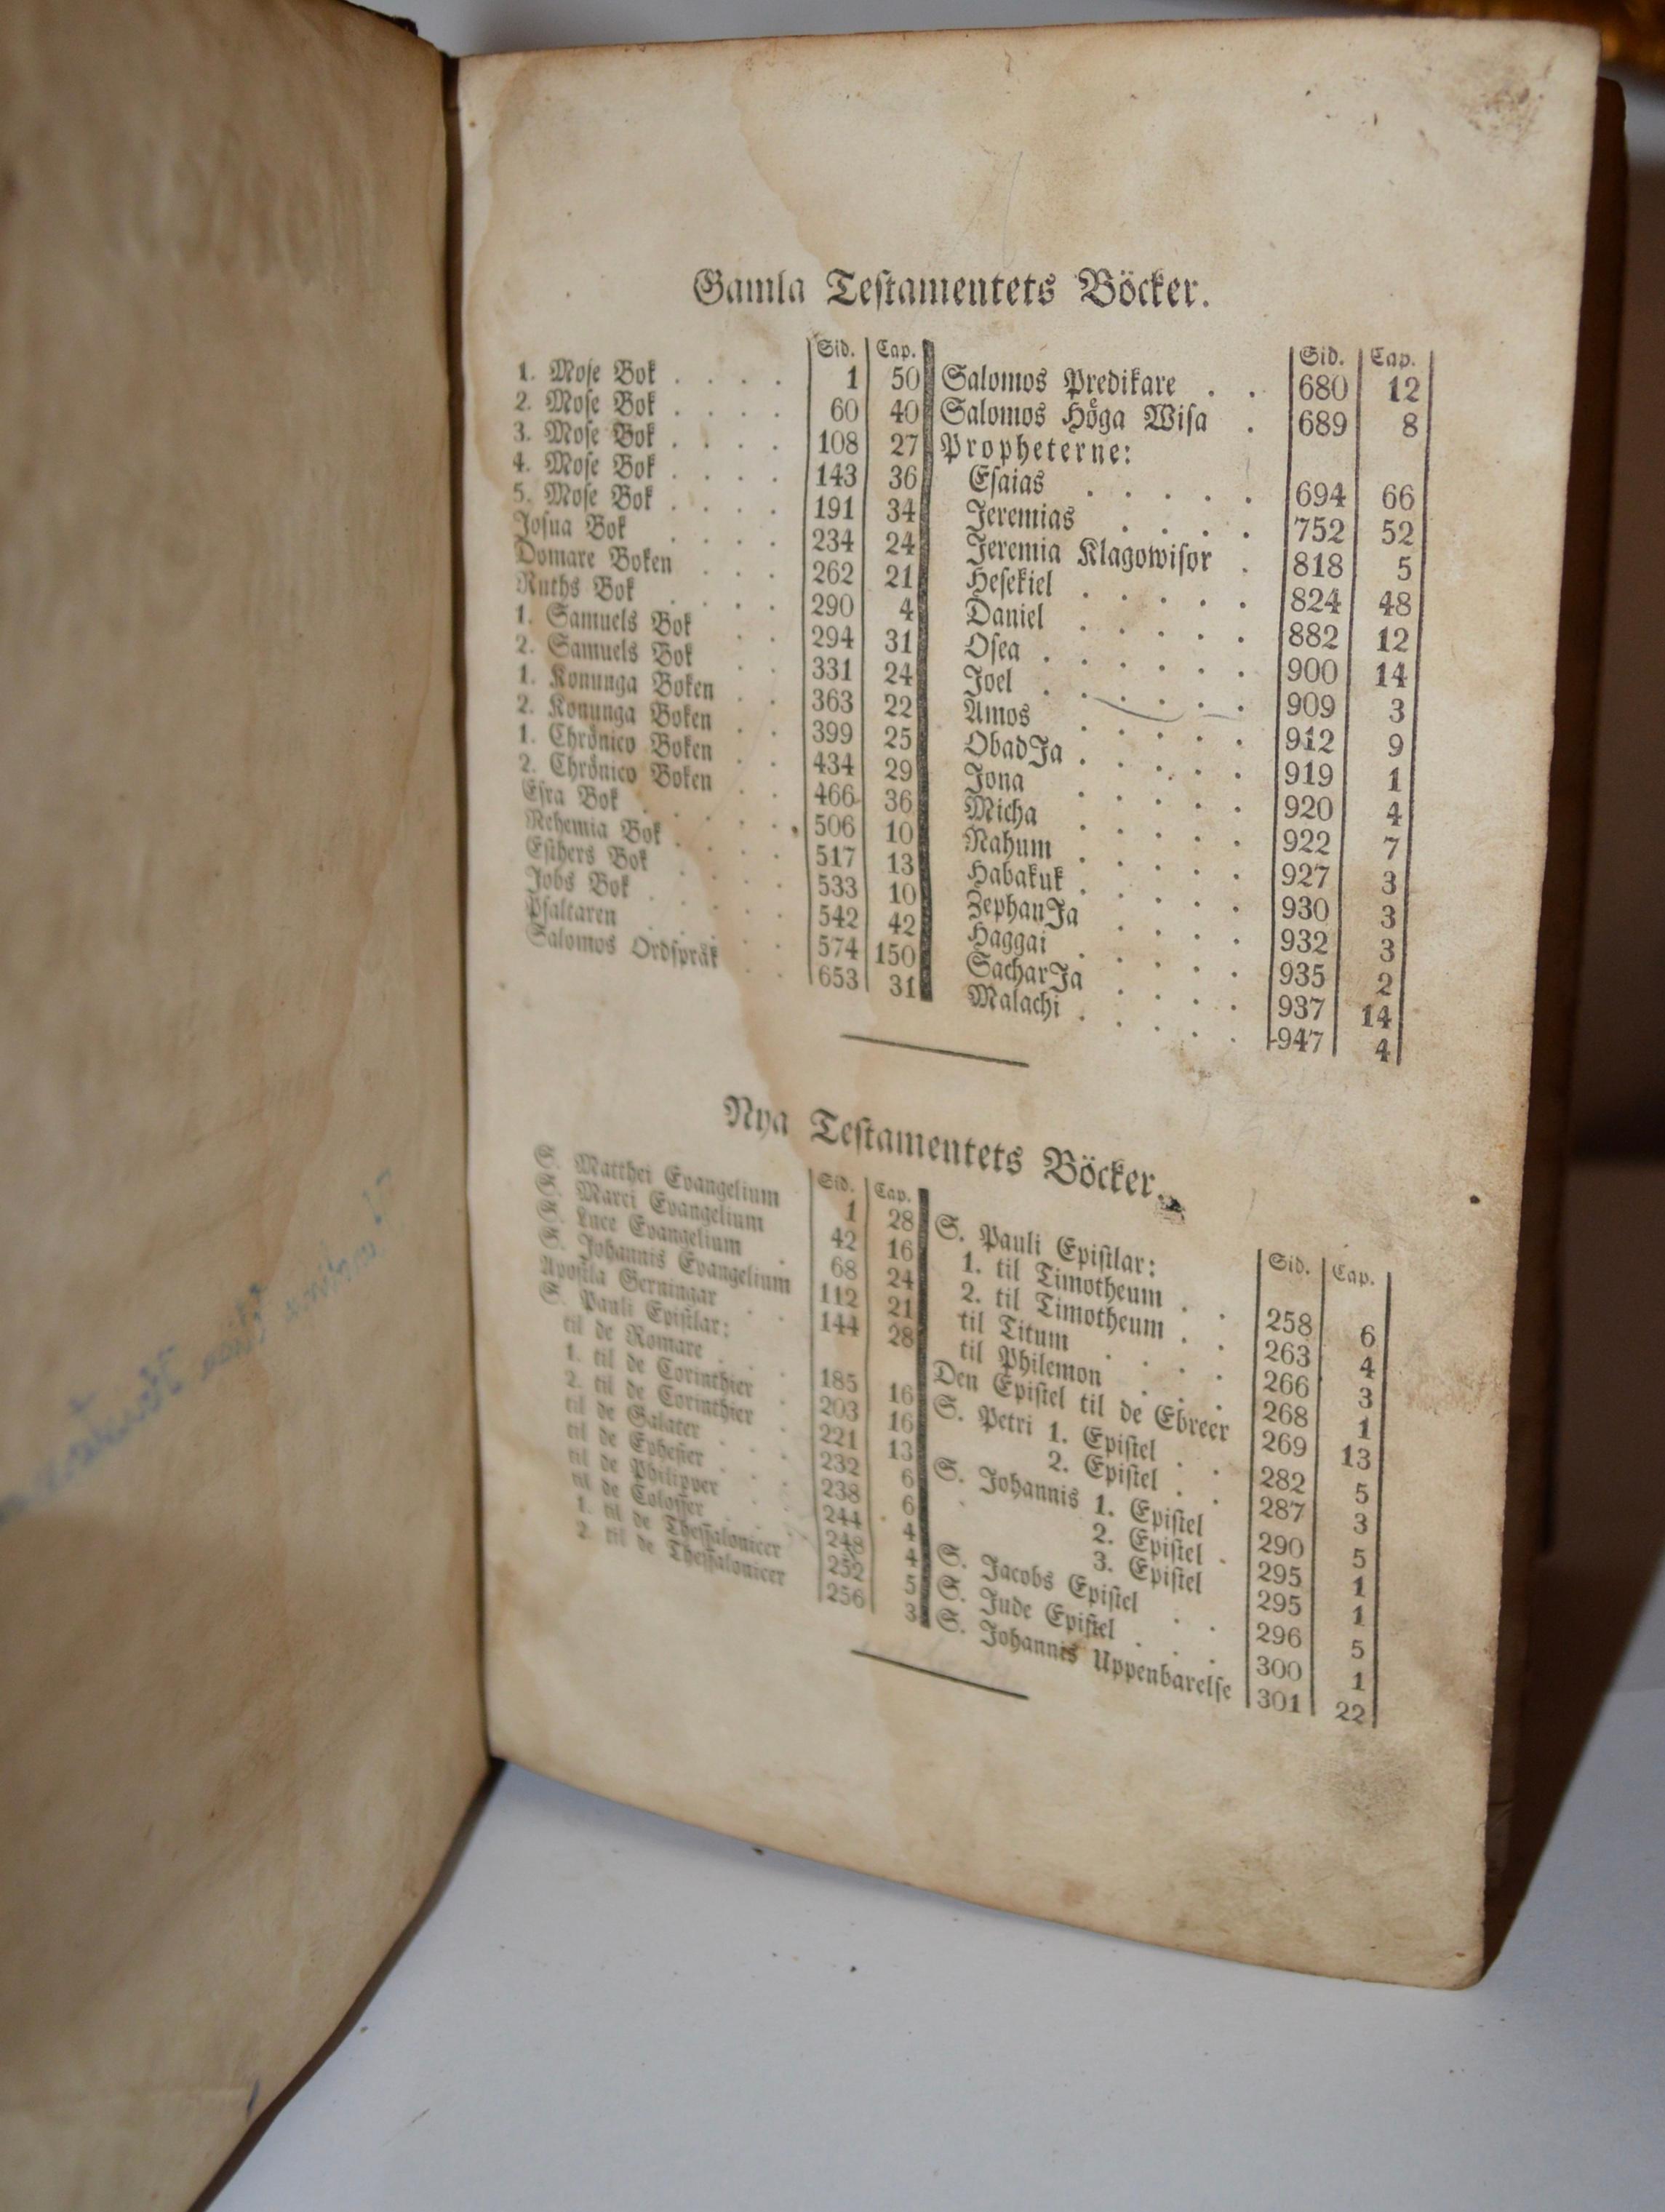 Gamla Testamentets Böcker.
Sid. Cap.
1. Mose Bok . . . . 1 50
2. Mose Bok . . . . 60 40
3. Mose Bok . . . . 108 27
4. Mose Bok . . . . 143 36
5. Mose Bok . . . . 191 34
Josua Bok . . . . 234 24
Domare Boken . . . 262 21
Ruths Bok . . . . 290 4
1. Samuels Bok . . 294 31
2. Samuels Bok . . 331 24
1. Konunga Boken . . 363 22
2. Konunga Boken . . 399 25
1. Chrönico Boken . . 434 29
2. Chrönico Boken . . 466 36
Esra Bok . . . . . 506 10
Nehemia Bok . . . . 517 13
Esthers Bok . . . . 533 10
Jobs Bok . . . . . 542 42
Psaltaren . . . . . 574 150
Salomos Ordspråk . . 653 31
Sid. Cap.
Salomos Predikare . . 680 12
Salomos Höga Wisa . 689 8
Propheterne:
Esaias . . . . . 694 66
Jeremias . . . . 752 52
Jeremia Klagowisor . 818 5
Hesekiel . . . . . 824 48
Daniel . . . . . 882 12
Osea . . . . . . 900 14
Joel . . . . . . 909 3
Amos . . . . . 912 9
ObadJa . . . . . 919 1
Jona . . . . . 920 4
Micha . . . . . 922 7
Nahum . . . . . 927 3
Habakuk . . . . . 930 3
ZephanJa . . . . 932 3
Haggai . . . . . 935 2
SacharJa . . . . 937 14
Malachi . . . . . 947 4
Nya Testamentets Böcker.
Sid. Cap.
S. Matthei Evangelium 1 28
S. Marci Evangelium 42 16
S. Luce Evangelium . 68 24
S. Johannis Evangelium 112 21
Apostla Gerningar . . 144 28
S. Pauli Epistlar:
til de Romare . . . 185 16
1. til de Corinthier . 203 16
2. til de Corinthier . 221 13
til de Galater . . . 232 6
til de Ephesier . . . 238 6
til de Philipper . . 244 4
til de Colosser . . . 248 4
1. til de Thessalonicer 252 5
2. til de Thessalonicer 256 3
Sid. Cap.
S. Pauli Epistlar:
1. til Timotheum . . 258 6
2. til Timotheum . . 263 4
til Titum . . . . 266 3
til Philemon . . . 268 1
Den Epistel til de Ebreer 269 13
S. Petri 1. Epistel . . 282 5
2. Epistel . . 287 3
S. Johannis 1. Epistel 290 5
2. Epistel . 295 1
3. Epistel 295 1
S. Jacobs Epistel . . 296 5
S. Jude Epistel . . . 300 1
S. Johannis Uppenbarelse 301 22